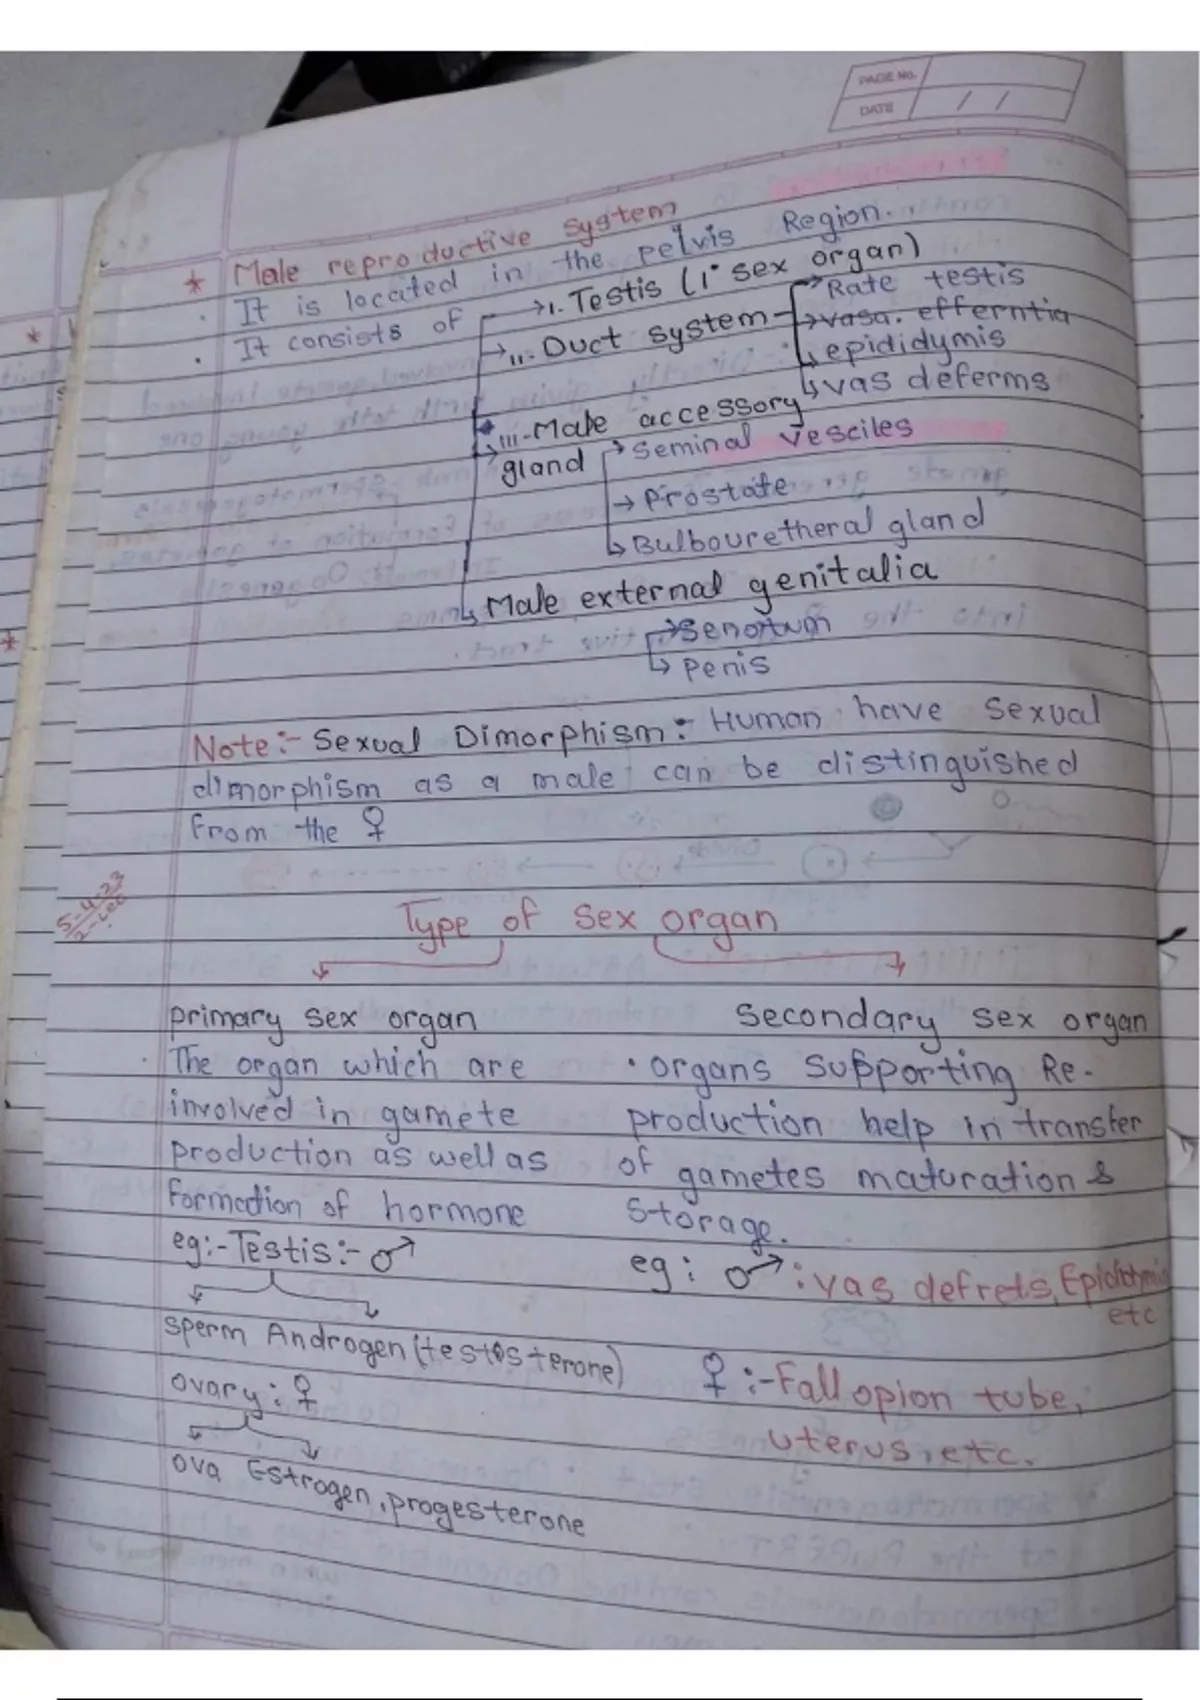 PAGE No.
DATE / /
* Male reproductive System
. It is located in the pelvis Region.
. It consists of → I. Testis (1° sex organ)
→ II. Duct system → Rate testis
→ vasa. efferntia
↳ epididymis
↳ vas deferms
→ III- Male accessory
gland → Seminal vesciles
→ Prostate
↳ Bulbouretheral gland
↳ Male external genitalia
→ Senortum
↳ Penis
Note:- Sexual Dimorphism:- Human have sexual
dimorphism as a male can be distinguished
from the ♀
5-4-23
2-Lec
Type of Sex organ
primary sex organ
The organ which are
involved in gamete
production as well as
formation of hormone
eg:- Testis:- ♂
sperm Androgen (testosterone)
ovary: ♀
ova Estrogen, progesterone
Secondary sex organ
• organs supporting Re-
production help in transfer
of gametes maturation &
Storage.
eg: ♂: vas defrets, Epididymis
etc
♀:- Fallopion tube,
uterus, etc.